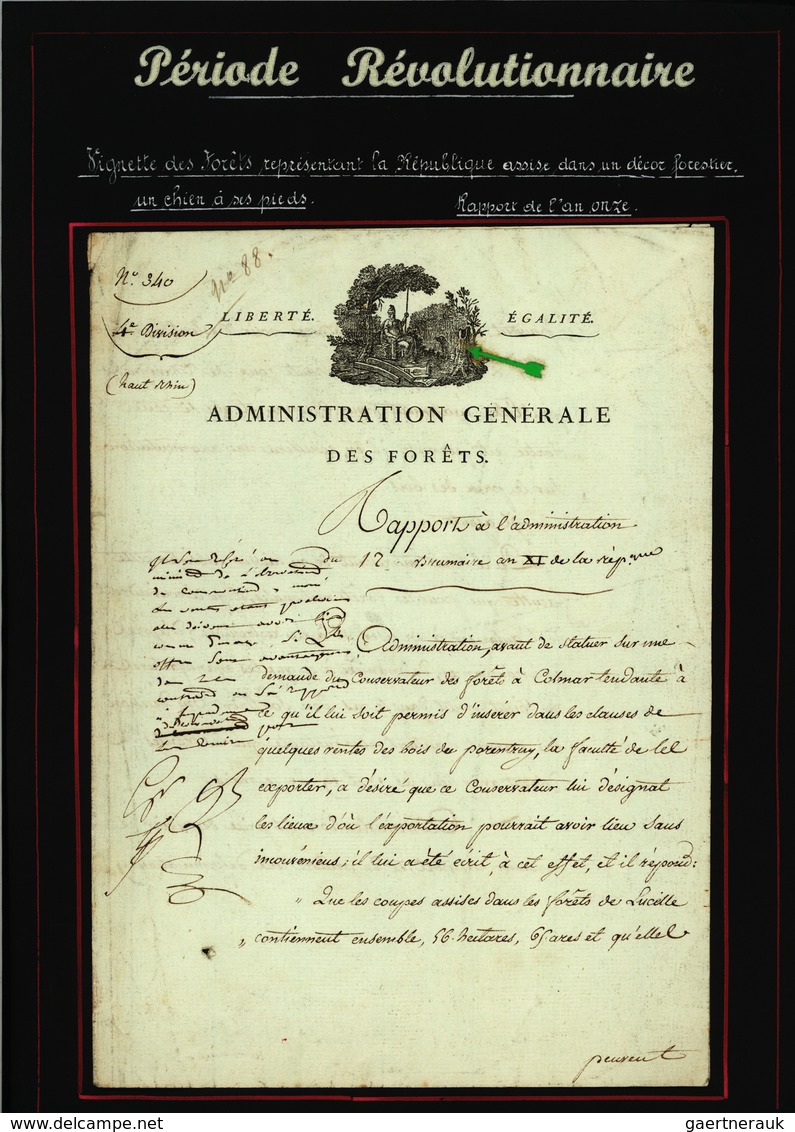 Période Révolutionnaire
Vignette des Forêts représentant la République assise dans un décor forestier,
un chien à ses pieds. Rapport de l'an onze.
N.º 340
nº 88.
4e Division
(haut Rhin)
LIBERTÉ. ÉGALITÉ.
ADMINISTRATION GÉNÉRALE
DES FORÊTS.
Rapport à l'administration
du 12 Brumaire an XI de la rép.que
L'Administration, avant de statuer sur une
demande du Conservateur des forêts à Colmar tendante à
ce qu'il lui soit permis d'insérer dans les clauses de
quelques ventes des bois de porentruy, la faculté de les
exporter, a désiré que ce Conservateur lui désignat
les lieux d'où l'exportation pourrait avoir lieu sans
inconvéniens; il lui a été écrit à cet effet, et il répond:
" Que les coupes assises dans les forêts de Lucelle
" contiennent ensemble, 56 hectares, 65 ares et qu'elles
peuvent
gaertnerauk